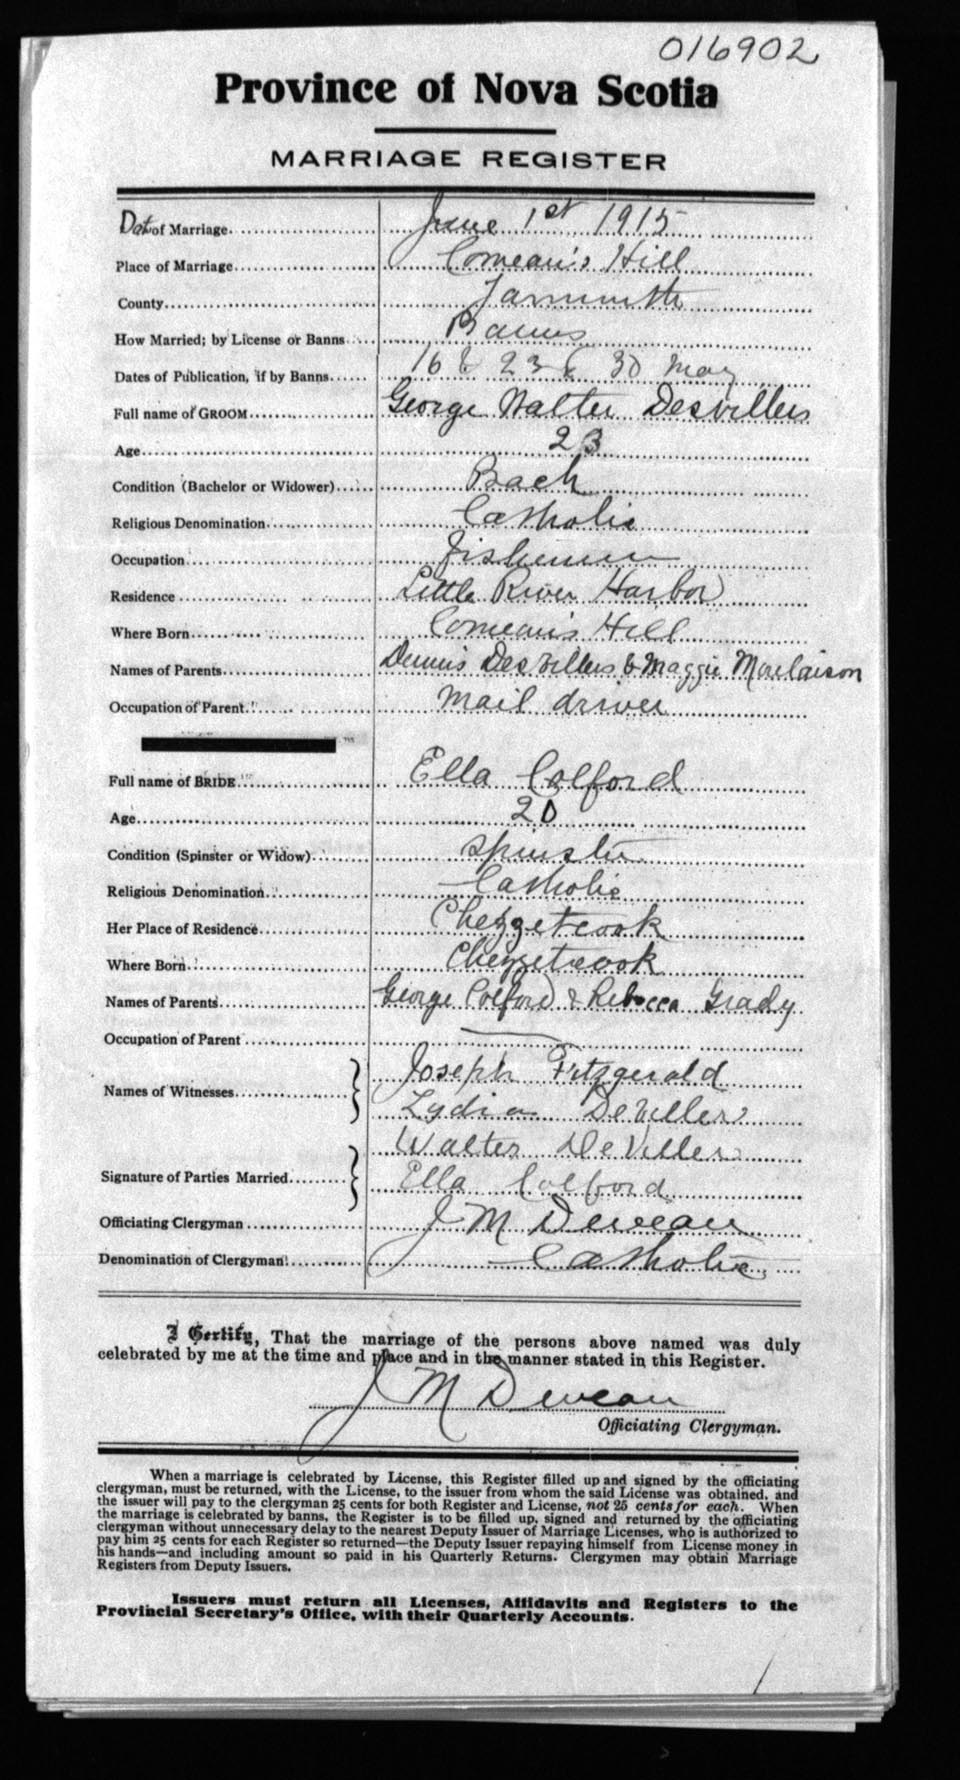 016902
Province of Nova Scotia
MARRIAGE REGISTER
Date of Marriage June 1st 1915
Place of Marriage Comeau's Hill
County Yarmouth
How Married; by License or Banns Banns
Dates of Publication, if by Banns 16 & 23 & 30 May
Full name of GROOM George Walter Desvillers
Age 23
Condition (Bachelor or Widower) Bach
Religious Denomination Catholic
Occupation Fisherman
Residence Little River Harbor
Where Born Comeau's Hill
Names of Parents Dennis Desvillers & Maggie Mourlaison
Occupation of Parent Mail driver
Full name of BRIDE Ella Colford
Age 20
Condition (Spinster or Widow) Spinster
Religious Denomination Catholic
Her Place of Residence Chezzetcook
Where Born Chezzetcook
Names of Parents George Colford & Rebecca Grady
Occupation of Parent
Names of Witnesses Joseph Fitzgerald
Lydia DeViller
Signature of Parties Married Walter DeViller
Ella Colford
Officiating Clergyman J M Deveau
Denomination of Clergyman Catholic
I Certify, That the marriage of the persons above named was duly
celebrated by me at the time and place and in the manner stated in this Register.
J M Deveau
Officiating Clergyman.
When a marriage is celebrated by License, this Register filled up and signed by the officiating
clergyman, must be returned, with the License, to the issuer from whom the said License was obtained, and
the issuer will pay to the clergyman 25 cents for both Register and License, not 25 cents for each. When
the marriage is celebrated by banns, the Register is to be filled up, signed and returned by the officiating
clergyman without unnecessary delay to the nearest Deputy Issuer of Marriage Licenses, who is authorized to
pay him 25 cents for each Register so returned—the Deputy Issuer repaying himself from License money in
his hands—and including amount so paid in his Quarterly Returns. Clergymen may obtain Marriage
Registers from Deputy Issuers.
Issuers must return all Licenses, Affidavits and Registers to the
Provincial Secretary's Office, with their Quarterly Accounts.